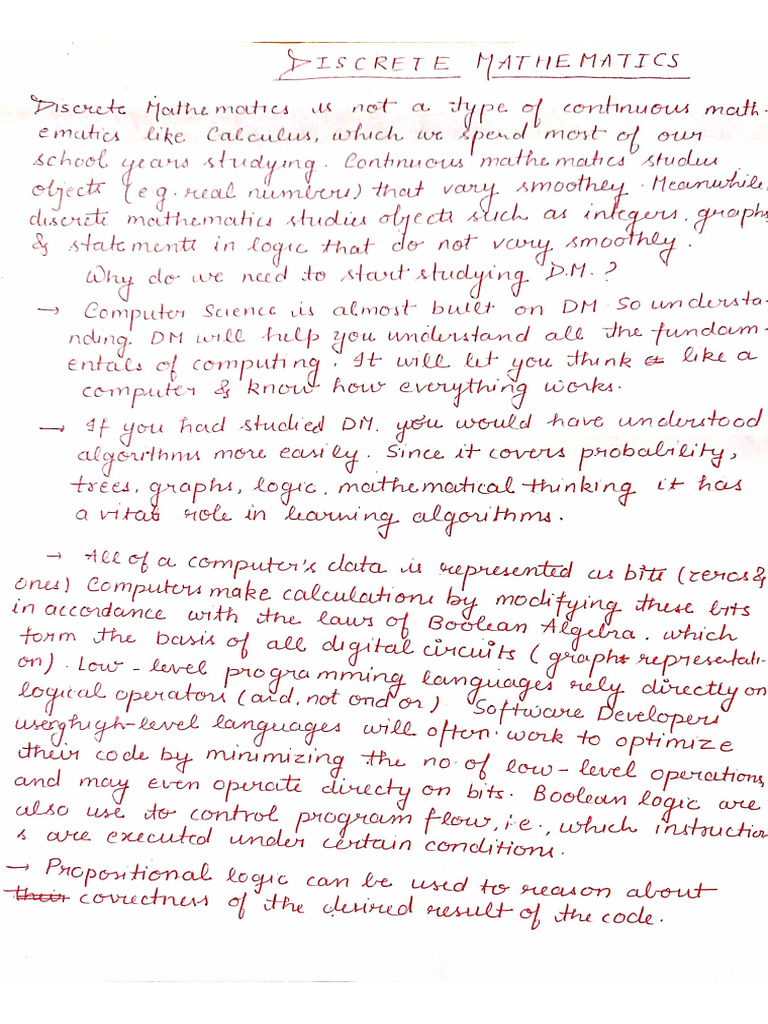 DISCRETE MATHEMATICS
Discrete Mathematics is not a type of continuous math-
ematics like Calculus, which we spend most of our
school years studying. Continuous mathematics studies
objects (e.g. real numbers) that vary smoothly. Meanwhile,
discrete mathematics studies objects such as integers, graphs
& statements in logic that do not vary smoothly.
Why do we need to start studying D.M.?
→ Computer Science is almost built on DM so understa-
nding DM will help you understand all the fundam-
entals of computing. It will let you think like a
computer & know how everything works.
→ If you had studied DM, you would have understood
algorithms more easily. Since it covers probability,
trees, graphs, logic, mathematical thinking it has
a vital role in learning algorithms.
→ All of a computer's data is represented as bits (zeros &
ones) Computers make calculations by modifying these bits
in accordance with the laws of Boolean Algebra, which
form the basis of all digital circuits (graphs representati-
on). Low-level programming languages rely directly on
logical operators (and, not and or) Software Developers
using high-level languages will often work to optimize
their code by minimizing the no. of low-level operations,
and may even operate directy on bits. Boolean logic are
also use to control program flow, i.e., which instruction
s are executed under certain conditions.
→ Propositional logic can be used to reason about
their correctness of the desired result of the code.